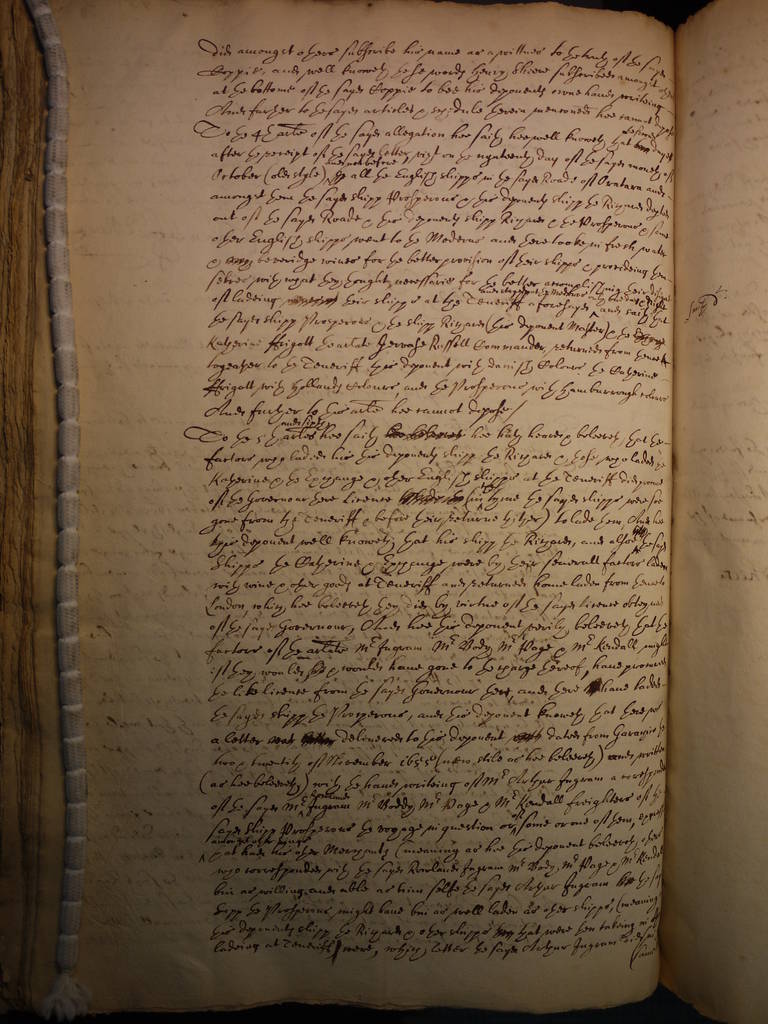 did amongst others subscribe his name as a wittnes to the truth of the sayd
Coppie, and well knoweth the words Henry Shiene subscribed amongst others
at the bottome of the sayd Coppie to bee his deponents owne hand writeing
And further to the sayd articles & scedule therein mencioned hee cannot depose
To the 4th article of the sayd allegation hee saith hee well knoweth that
after the receipt of the sayd letter, vizt on the nynteenth day of the sayd moneth of
October (old style) all the English shipps in the sayd Roade of Oratava and
amongst them the sayd shipp Prosperous & this deponents shipp the Richard
out of the sayd Roade & this deponents shipp Richard & the Prosperous & some
other English shipps went to the Maderas and there tooke in fresh water
& beveridge wines for the better provision of their shipps & provideing them
selves with what they thought necessarie for the better accomplishing their
of ladeing their shipps at the Teneriff aforesayd, and saith that
the sayd shipp Prosperous & the shipp Richard (this deponent Master) & the
Katherine ffrigott the articulate Gervase Russell Commander, returned from thence
togeather to the Teneriff this deponent with danish Colours the Catherine
ffrigott with Hollands Colours and the Prosperous with hamburrough colours
And further to this article hee cannot depose/
To the 5th and sixth articles hee saith hee hath heard & beleeveth that the
factors who laded this deponents shipp the Richard & those who laded the
Katherine & the Exchange & other English shipps at the Teneriff did procure
of the Governour there licence (in the tyme the sayd shipps were soe
gone from the Teneriff & before their returne thither) to lade them And hee
this deponent well knoweth that his shipp the Richard, and alsoe the sayd
shipps the Catherine & Exchange were by their severall factors laden
with wine & other goods at Teneriff and returned home laden from thence to
London, which hee beleeveth they did by virtue of the sayd licence obteyned
of the sayd Governour, And hee this deponent verily beleeveth that the
factors of the articulate Mr Ingram Mr Body Mr Page & Mr Kendall might
if they would & would have gone to the charge thereof, have procured
the like licence from the sayd Governour there, and there have laded
the sayd shipp the Prosperous, and this deponent knoweth that there was
a letter delivered to this deponent dated from Garachico the
two & twentith of November 1655 (new stile as hee beleeveth) and written
(as hee beleeveth) with the hand writeing of Mr Arthur Ingram a correspondent
of the sayd Mr Rowland Ingram Mr Boddy Mr Page & Mr Kendall freighters of the
sayd shipp Prosperous the voyage in question or of some or one of them,
that had this other Merchants (meaning as hee this deponent beleeveth others
who corresponded with the sayd Rowland Ingram Mr Body, Mr Page & Mr Kendall
bin as willing and able as him selfe the sayd Arthur Ingram the sayd
shipp the Prosperous might have bin as well laden as other shipps, (meaning
this deponents shipp the Richard & other shipps that were then takeing in of
ladeing at Teneriff) were, which letter the sayd Arthur Ingram did